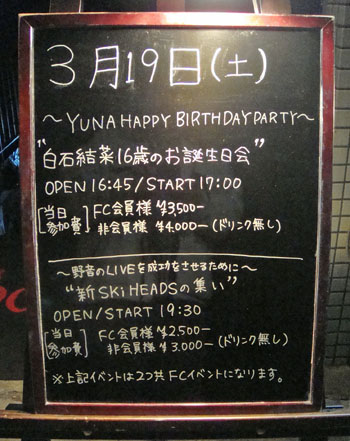 3月19日(土)
～YUNA HAPPY BIRTHDAY PARTY～
"白石結菜16歳のお誕生日会"
OPEN 16:45/START 17:00
[当日参加費] FC会員様 ¥3,500-
非会員様 ¥4,000-(ドリンク無し)
～野音のLIVEを成功をさせるために～
"新SKiHEADSの集い"
OPEN/START 19:30
[当日参加費] FC会員様 ¥2,500-
非会員様 ¥3,000-(ドリンク無し)
※上記イベントは2つ共FCイベントになります。